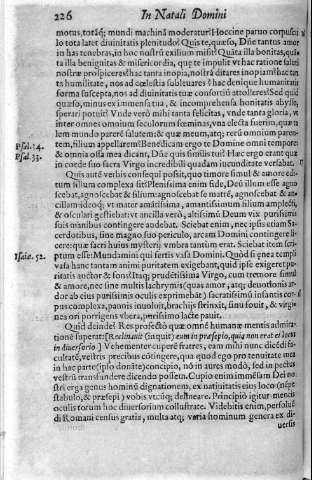 226 In Natali Domini
motus, totáq; mundi machina moderatur? Hoccine paruo corpuscu
lo tota latet diuinitatis plenitudo? Quis te, quæso, Dñe tantus amor
in has tenebras, in hoc nostrũ exilium misit? Quæta illa bonitas, quæ
ta illa benignitas & misericordia, quę te impulit vt hac ratione saluti
nostræ prospiceres? hac tanta inopia, nostrã ditares inopiam? hac tan
ta humilitate, nos ad cœlestia subleuares? hac denique humanitatis
forma suscepta, nos ad diuinitatis tuæ consortiũ attolleres? Sed quid
quæso, minus ex immensa tua, & incomprehensa bonitatis abysso,
sperari potuit? Vnde verò mihi tanta felicitas, vnde tanta gloria, vt
inter omnes omnium seculorum fœminas, vna electa fuerim, quæ tá
lem mundo parerē salutem; & quæ meum, atq; rerũ omnium paren
tem, filium appellarem? Benedicam ergo te Domine omni tempore
Psal. 34. & omnia ossa mea dicant, Dñe quis similis tui? Hæc ergo erant quæ
Psal. 33. in corde suo sacra Virgo incredibili quadam iucunditate versabat.
Quis autē verbis consequi possit, quo timore simul & amore edi-
tum filium complexa sit? Plenissima enim fide, Deũ illum esse agno
scebat, agnoscebat & filium: agnoscebat se matrē, agnoscebat & an-
cillam: ideoq; vt mater amantissima, amantissimum filium amplecti,
& osculari gestiebat: vt ancilla verò, altissimũ Deum vix purissimis
suis manibus contingere audebat. Sciebat enim, nec ipsis etiam Sa-
cerdotibus, sine magno suo periculo, arcam Domini contingere li-
cere: quæ sacri huius mysterij vmbra tantum erat. Sciebat item scri-
Isaiæ. 52. ptum esse: Mundamini qui fertis vasa Domini. Quòd si genea templi
vasa hanc tantam animi puritatem exigebant, quid ipse exigeret pu-
ritatis auctor & fons? Itaq; prudētissima Virgo, cum tremore simul
& amore, nec sine multis lachrymis (quas amor, atq; deuotionis ar-
dor ab eius purissimis oculis exprimebat) sacratissimũ infantis cor-
pus complexa, pannis inuoluit, brachijs strinxit, sinu fouit, & virgi-
nes ori porrigens vbera, purissimo lacte pauit.
Quid deinde? Res profectò quæ omnē humanæ mentis admira-
tionē superat: [Reclinauit (inquit) eum in præsepio, quia non erat ei locus
in diuersorio.] Vehementer cuperē fratres, eam mihi nunc dicēdi fa-
cultatē, vestris precibus cōtingere, qua quod ego pro tenuitate mea
in hac parte (ipso donāte) concipio, nō in aures modò, sed in pectus
vestrũ transfundere dicendo possem. Cupio enim immēsam Dei no-
stri erga genus hominũ dignationem, ex natiuitatis eius loco (nēpe
stabulo, & præsepi) vobis vtcũq; delineare. Principiò igitur mentis
oculis totum hac diuersorium collustrate. Videbitis enim, persolué
di Romani census gratia, multa atq; varia hominum genera ex di-
uersis